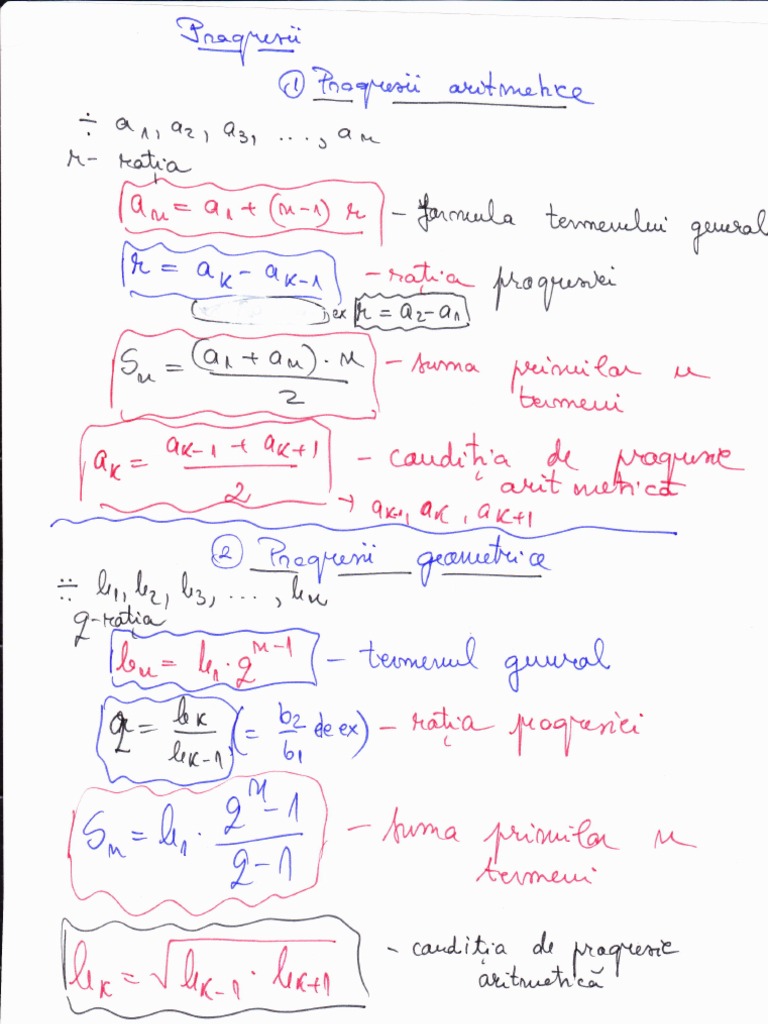 Progresii
① Progresii aritmetice
÷ a₁, a₂, a₃, ..., aₙ
r- rația
aₙ = a₁ + (n-1) r - formula termenului general
r = aₖ - aₖ₋₁ - rația progresiei
, ex r = a₂ - a₁
Sₙ = (a₁ + aₙ) · n / 2 - suma primilor n
termeni
aₖ = aₖ₋₁ + aₖ₊₁ / 2 - condiția de progresie
aritmetică
→ aₖ₋₁, aₖ, aₖ₊₁
② Progresii geometrice
∺ b₁, b₂, b₃, ..., bₙ
q-rația
bₙ = b₁ · qⁿ⁻¹ - termenul general
q = bₖ / bₖ₋₁ (= b₂ / b₁ de ex) - rația progresiei
Sₙ = b₁ · qⁿ - 1 / q - 1 - suma primilor n
termeni
bₖ = √bₖ₋₁ · bₖ₊₁ - condiția de progresie
aritmetică